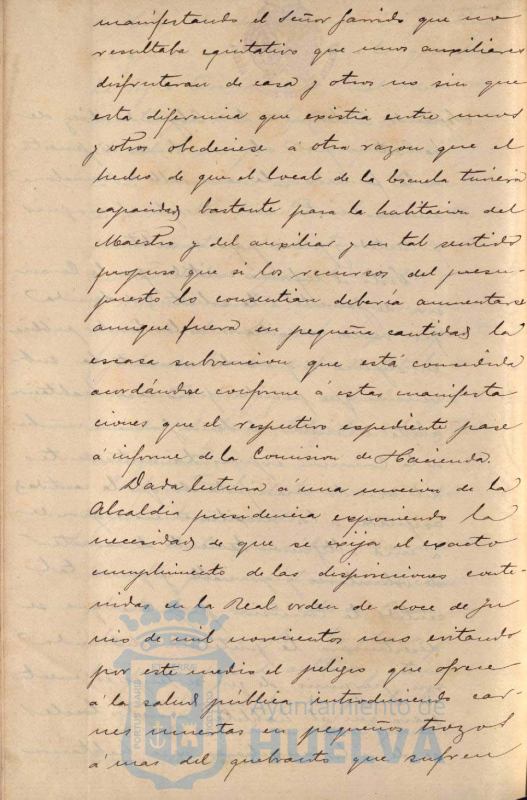 manifestando el Señor Garrido que no
resultaba equitativo que unos auxiliares
disfrutaran de casa y otros no sin que
esta diferencia que existia entre unos
y otros obedeciese á otra razon que el
hecho de que el local de la Escuela tuviera
capacidad bastante para la habitacion del
Maestro y del auxiliar y en tal sentido
propuso que si los recursos del presu-
puesto lo consentian debería aumentarse
aunque fuera en pequeña cantidad la
escasa subvencion que está concedida
acordándose conforme á estas manifesta
ciones que el respectivo espediente pase
á informe de la Comision de Hacienda.
Dada lectura á una mocion de la
Alcaldia presidencia exponiendo la
necesidad de que se exija el exacto
cumplimiento de las disposiciones conte-
nidas en la Real orden de doce de Ju
nio de mil novecientos uno evitando
por este medio el peligro que ofrece
á la salud pública introduciendo car-
nes muertas en pequeños trozos
á mas del quebranto que sufren
Ayuntamiento de
HUELVA
PORTUS MARIS